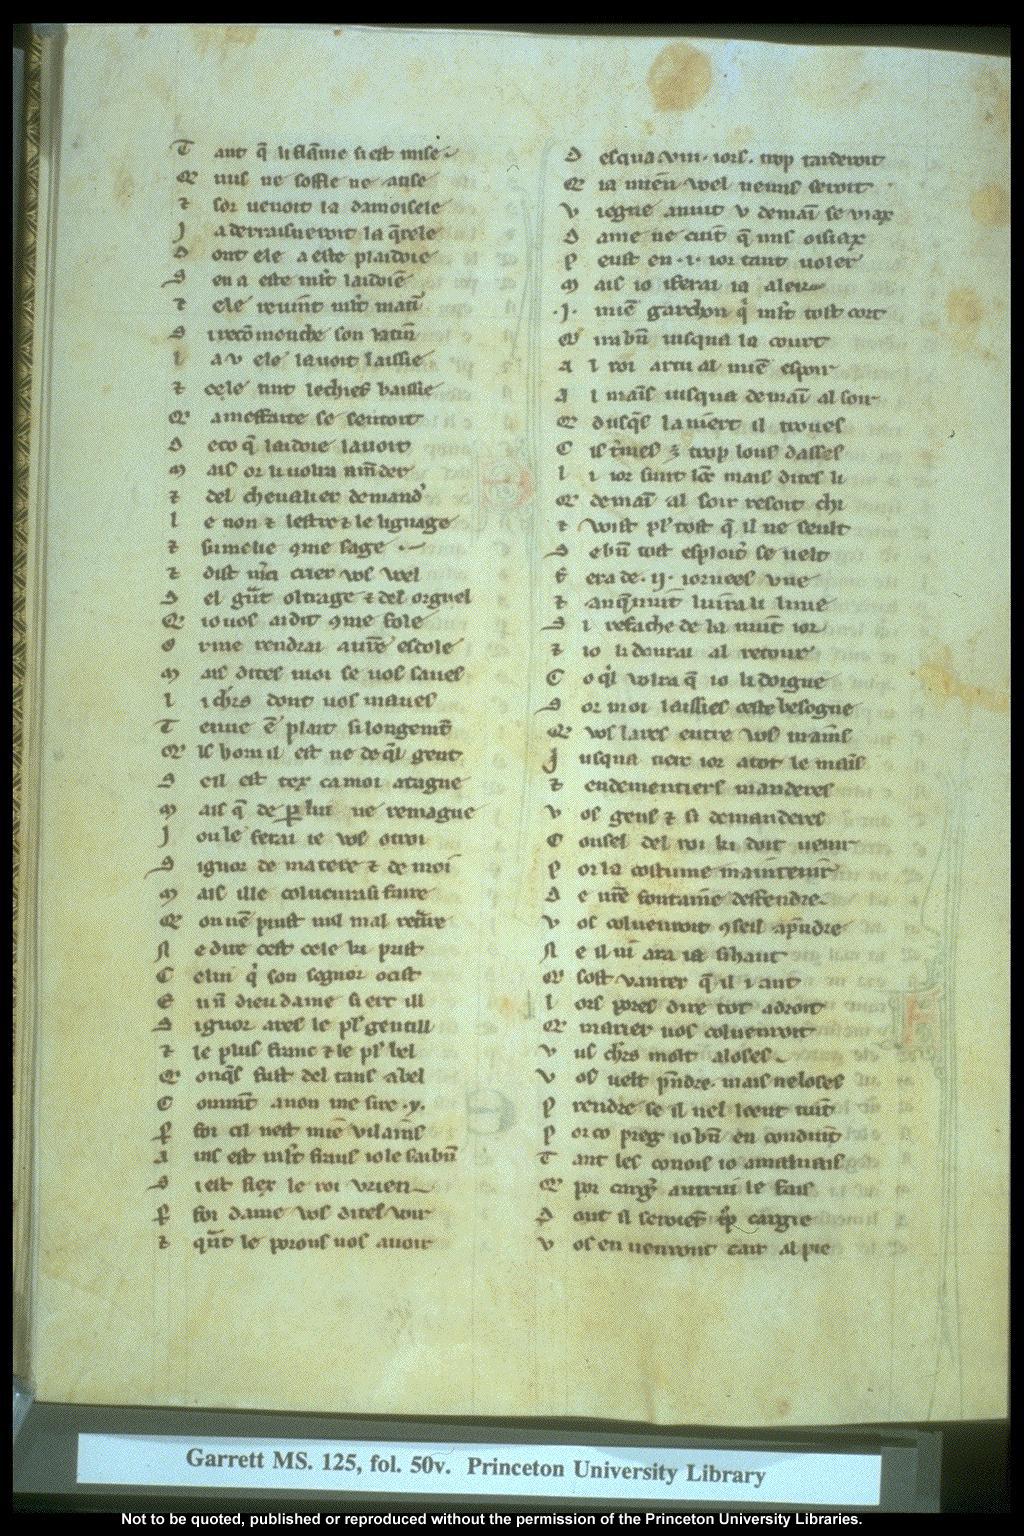 T ant q̃ li flãme si est mise
Q nus ne soffle ne atise
⁊ sor uenoit la damoisele
J a derraisneroit la q̃rele
D ont ele a este plaidoie
S en a este
⁊ ele reuint
S
L a v ele lauoit laissie
⁊ cele tint le chief baissie
Q a meffaite se sentoit
D eco q̃ laidie lauoit
M ais or li uolra amẽder
⁊ del cheualier demand'
L e non ⁊ lestre ⁊ le lignage
⁊ sumelie 9me sage
⁊ dist m̃ci crier vos voel
D el gñt oltrage ⁊ del orguel
Q io uos ai dit 9me fole
S
M ais dites moi se uos saues
L i ch'rs dont uos maues
T enue ẽ plait si longemt̃
Q ls hom il est ne de q̃l gent
S cil est tex ca moi atagne
M ais q̃ de par lui ne remagne
J ou le ferai ie vos otroi
S ignor de ma tere ⁊ de moi
M ais ille colueura si faire
Q on nẽ puist nul mal retr̃ire
N e dire cest cele ki prist
C elui q' son segnor ocist
E n nñ dieu dame si ert ill
S ignor ares le pl' gentill
⁊ le plus franc ⁊ le pl' bel
Q onq̃s fust del tans abel
C omm̃t a non me sire .y.
P foi cil nest miẽ vilains
A ins est mlt' frans io le sai bñ
S i est fiex le roi vrien
P foi dame vos dites voir
⁊ qñt le porons nos auoir
D esqua .viii. iors. trop tarderoit
Q ia miẽn voel uenus seroit
V iegne anuit v demaĩ se viax
D ame ne cuit q̃ nus oisiax
P eust en .i. ior tant uoler
M ais io i ferai ia aler
.J. miẽ garchon q' mlt' tost cort
Q ira bñ iusqua la court
A l roi artu al miẽ espoir
A l mains iusqua demaĩ al soir
Q dusq̃s la niert il troues
C is t'mes ẽ trop lons dasses
L i ior sunt lõc mais dites li
Q demaĩ al soir resoit chi
⁊ voist pl' tost q̃ il ne seult
S e bñ tost esploit' se uelt
F era de .ij. iornees vne
⁊ anq̃nuit luira li lune
S i reface de la nuit ior
⁊ io li donrai al retour
C o q'l volra q̃ io li doigne
S or moi laissies ceste besogne
Q vos lares entre vos mains
J usqua tierc ior a tot le mains
⁊ endementiers manderes
V os gens ⁊ si demanderes
C onsel del roi ki doit uenir
P or la costume maintenir
D e vr̃e fontaine deffendre
V os colueuroit 9seil apñdre
N e il ni ara ia si haut
Q sost vanter q̃ il i aut
L ors pores dire tot adroit
Q marier uos colueuroit
V ns ch'rs molt aloses
V os uelt pñdre. mais nel oses
P rendre se il nel loent tuit
P or co preg io bñ en conduit
T ant les conois io a maluais
Q por cargr̃ autrui le fais
D ont il seroiẽt tp̃ cargie
V os en uenront tait al pie
Garrett MS. 125, fol. 50v. Princeton University Library
Not to be quoted, published or reproduced without the permission of the Princeton University Libraries.